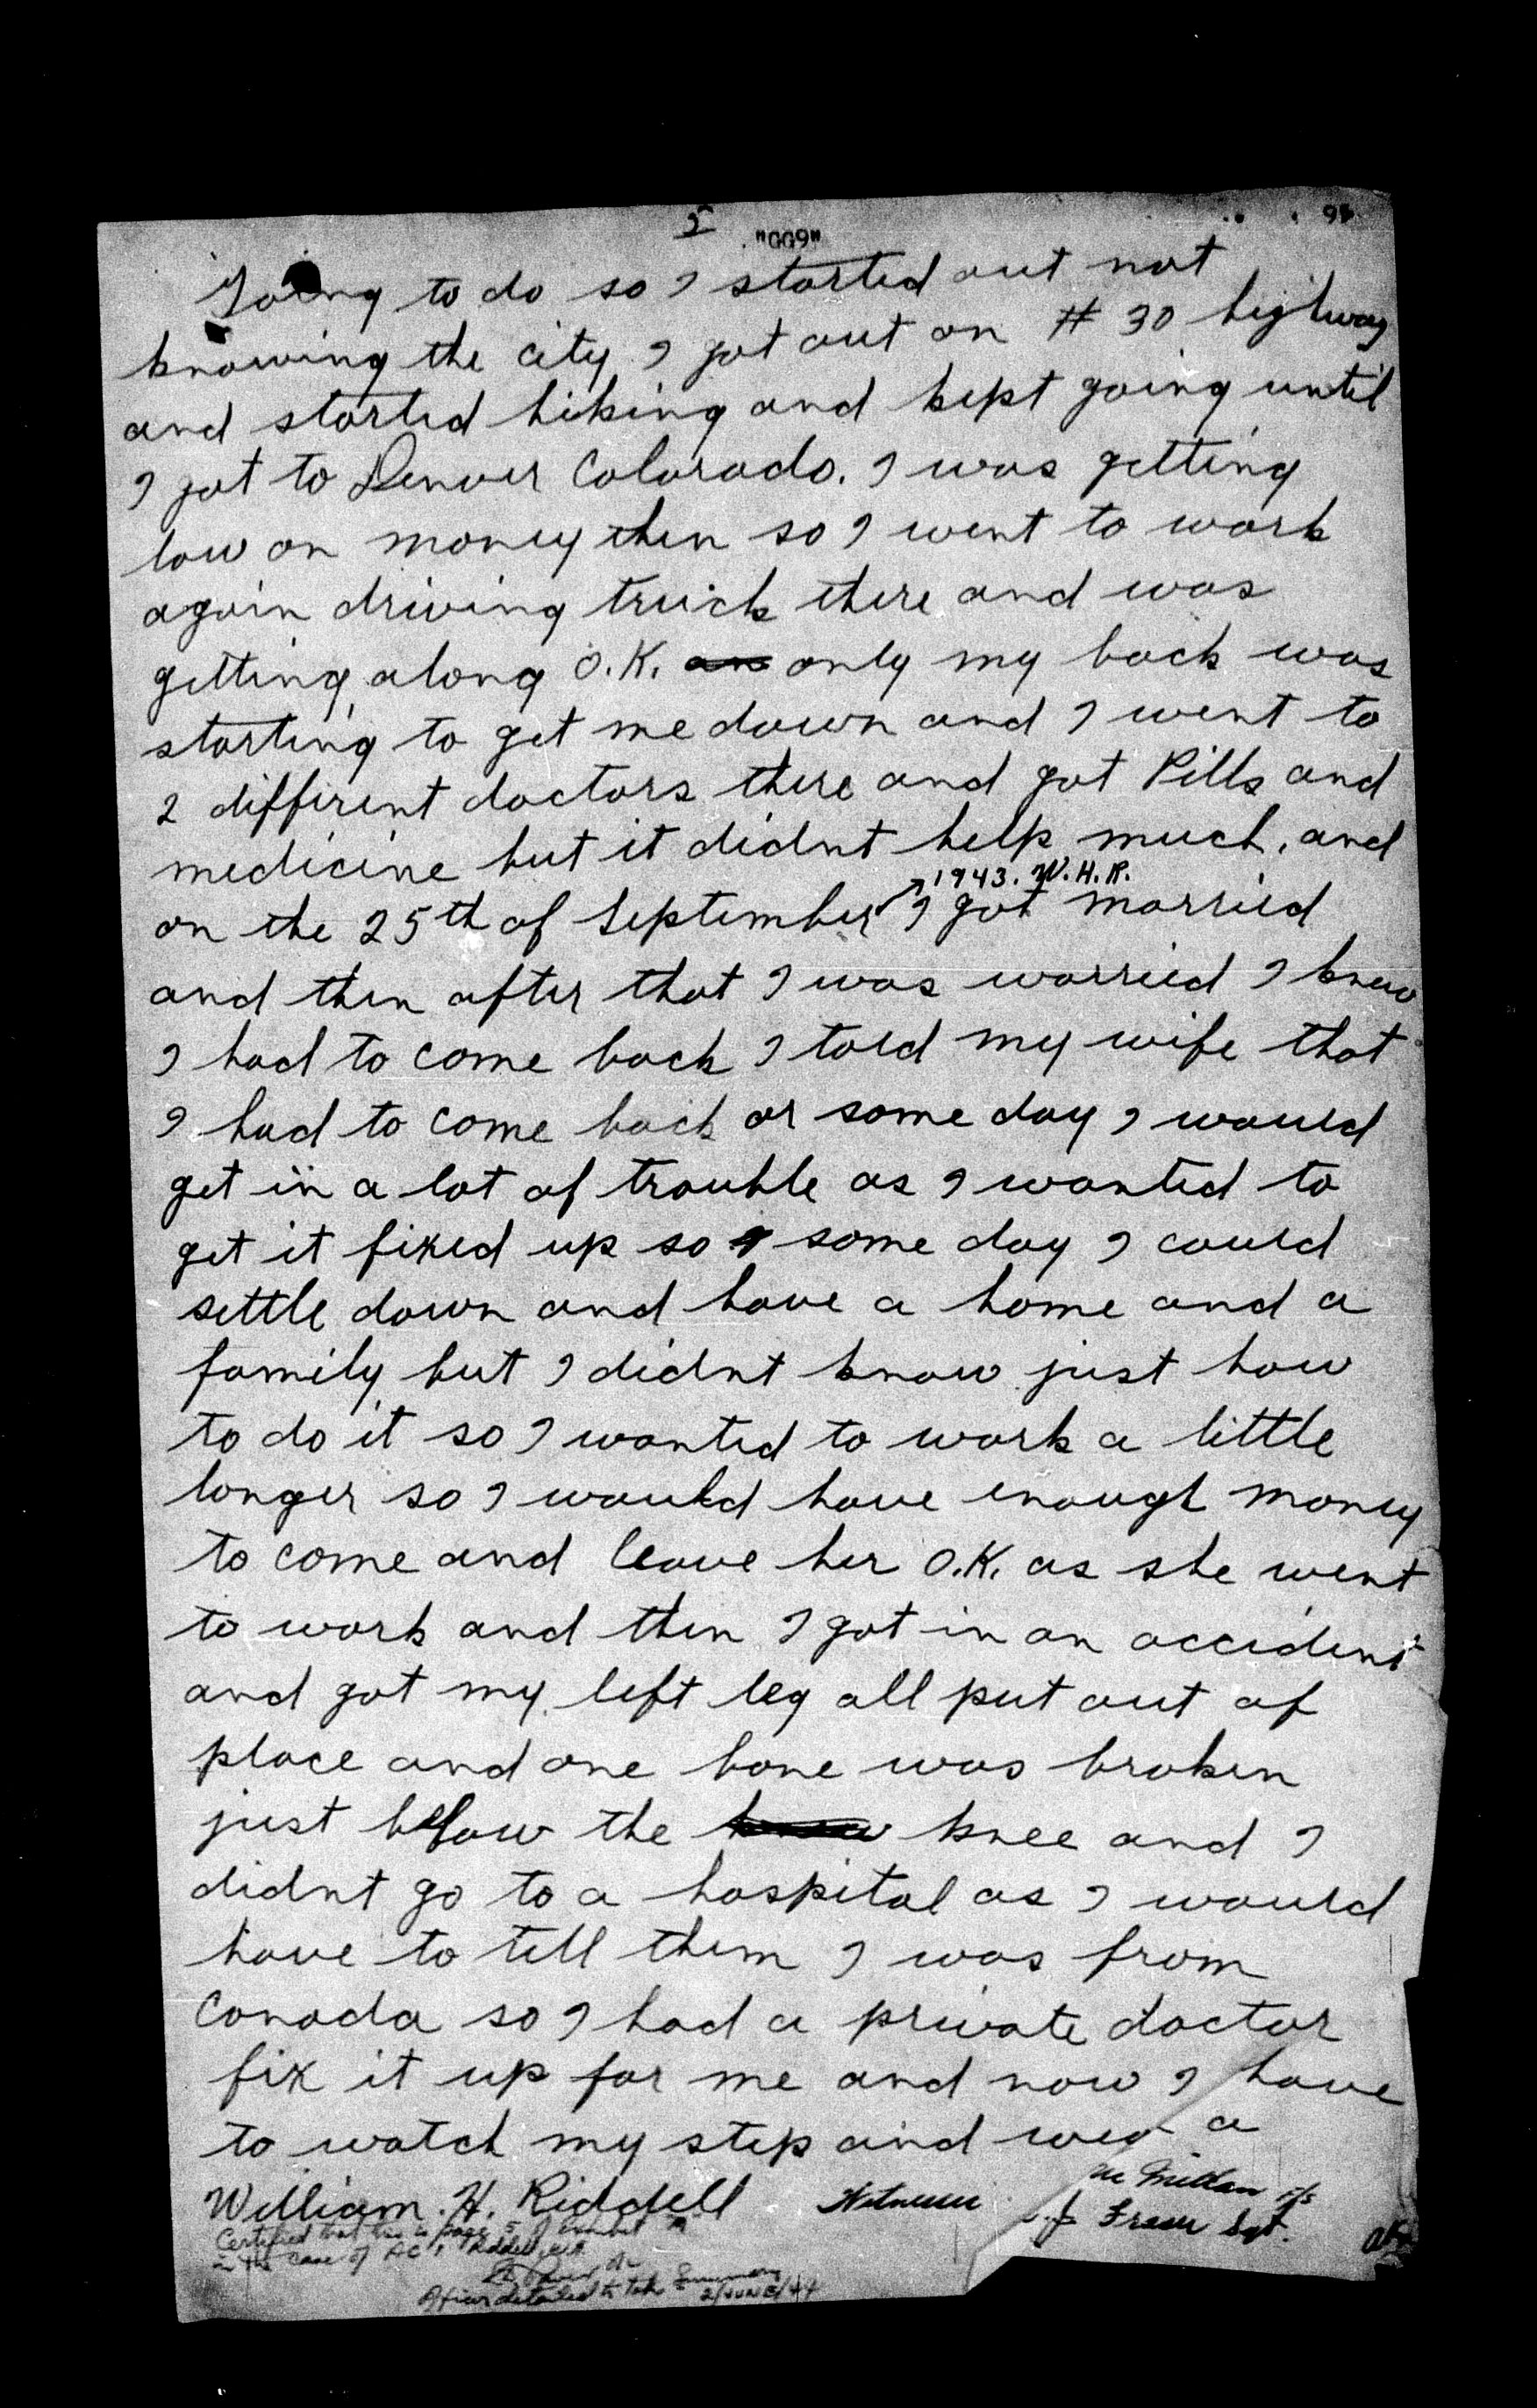 5
"GG9"
going to do so I started out not
knowing the city I got out on # 30 highway
and started hiking and kept going until
I got to Denver Colorado. I was getting
low on money then so I went to work
again driving truck there and was
getting along O.K. an only my back was
starting to get me down and I went to
2 different doctors there and got Pills and
medicine but it didnt help much, and
1943. W.H.R.
on the 25th of September I got married
and then after that I was worried I knew
I had to come back I told my wife that
I had to come back or some day I would
get in a lot of trouble as I wanted to
get it fixed up so I some day I could
settle down and have a home and a
family but I didnt know just how
to do it so I wanted to work a little
longer so I would have enough money
to come and leave her O.K. as she went
to work and then I got in an accident
and got my left leg all put out of
place and one bone was broken
just below the knee and I
didnt go to a hospital as I would
have to tell them I was from
Canada so I had a private doctor
fix it up for me and now I have
to watch my step and wear a
William. H. Riddell Witnesses McMillan
J. Fraser Sgt.
Certified that this is page 5 of Exhibit
in the case of AC1 Riddell
Officer detailed to take Summary
2/JUNE/44